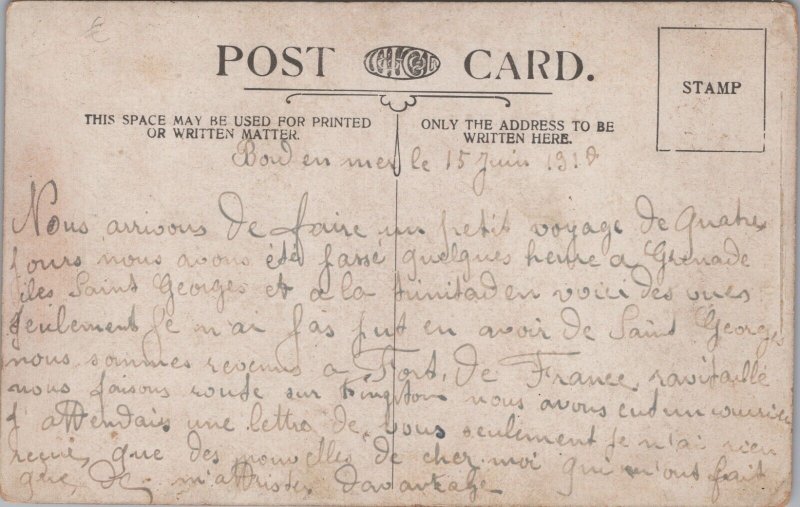 POST CARD.
STAMP
THIS SPACE MAY BE USED FOR PRINTED
OR WRITTEN MATTER.
ONLY THE ADDRESS TO BE
WRITTEN HERE.
Bord en mer le 15 Juin 1918
Nous arrivons de faire un petit voyage de quatre
jours nous avons été passé quelques heure a Grenade
iles Saint Georges et a la trinitad en voici des vues
seulement je n'ai pas put en avoir de Saint Georges
nous sommes revenus a Fort, de France ravitaillé
nous faisons route sur Kingston nous avons eut un courrier
j'attendais une lettre de vous seulement je n'ai rien
reçue, que des nouvelles de chez moi qui m'ont fait
que de m'attrister davantage